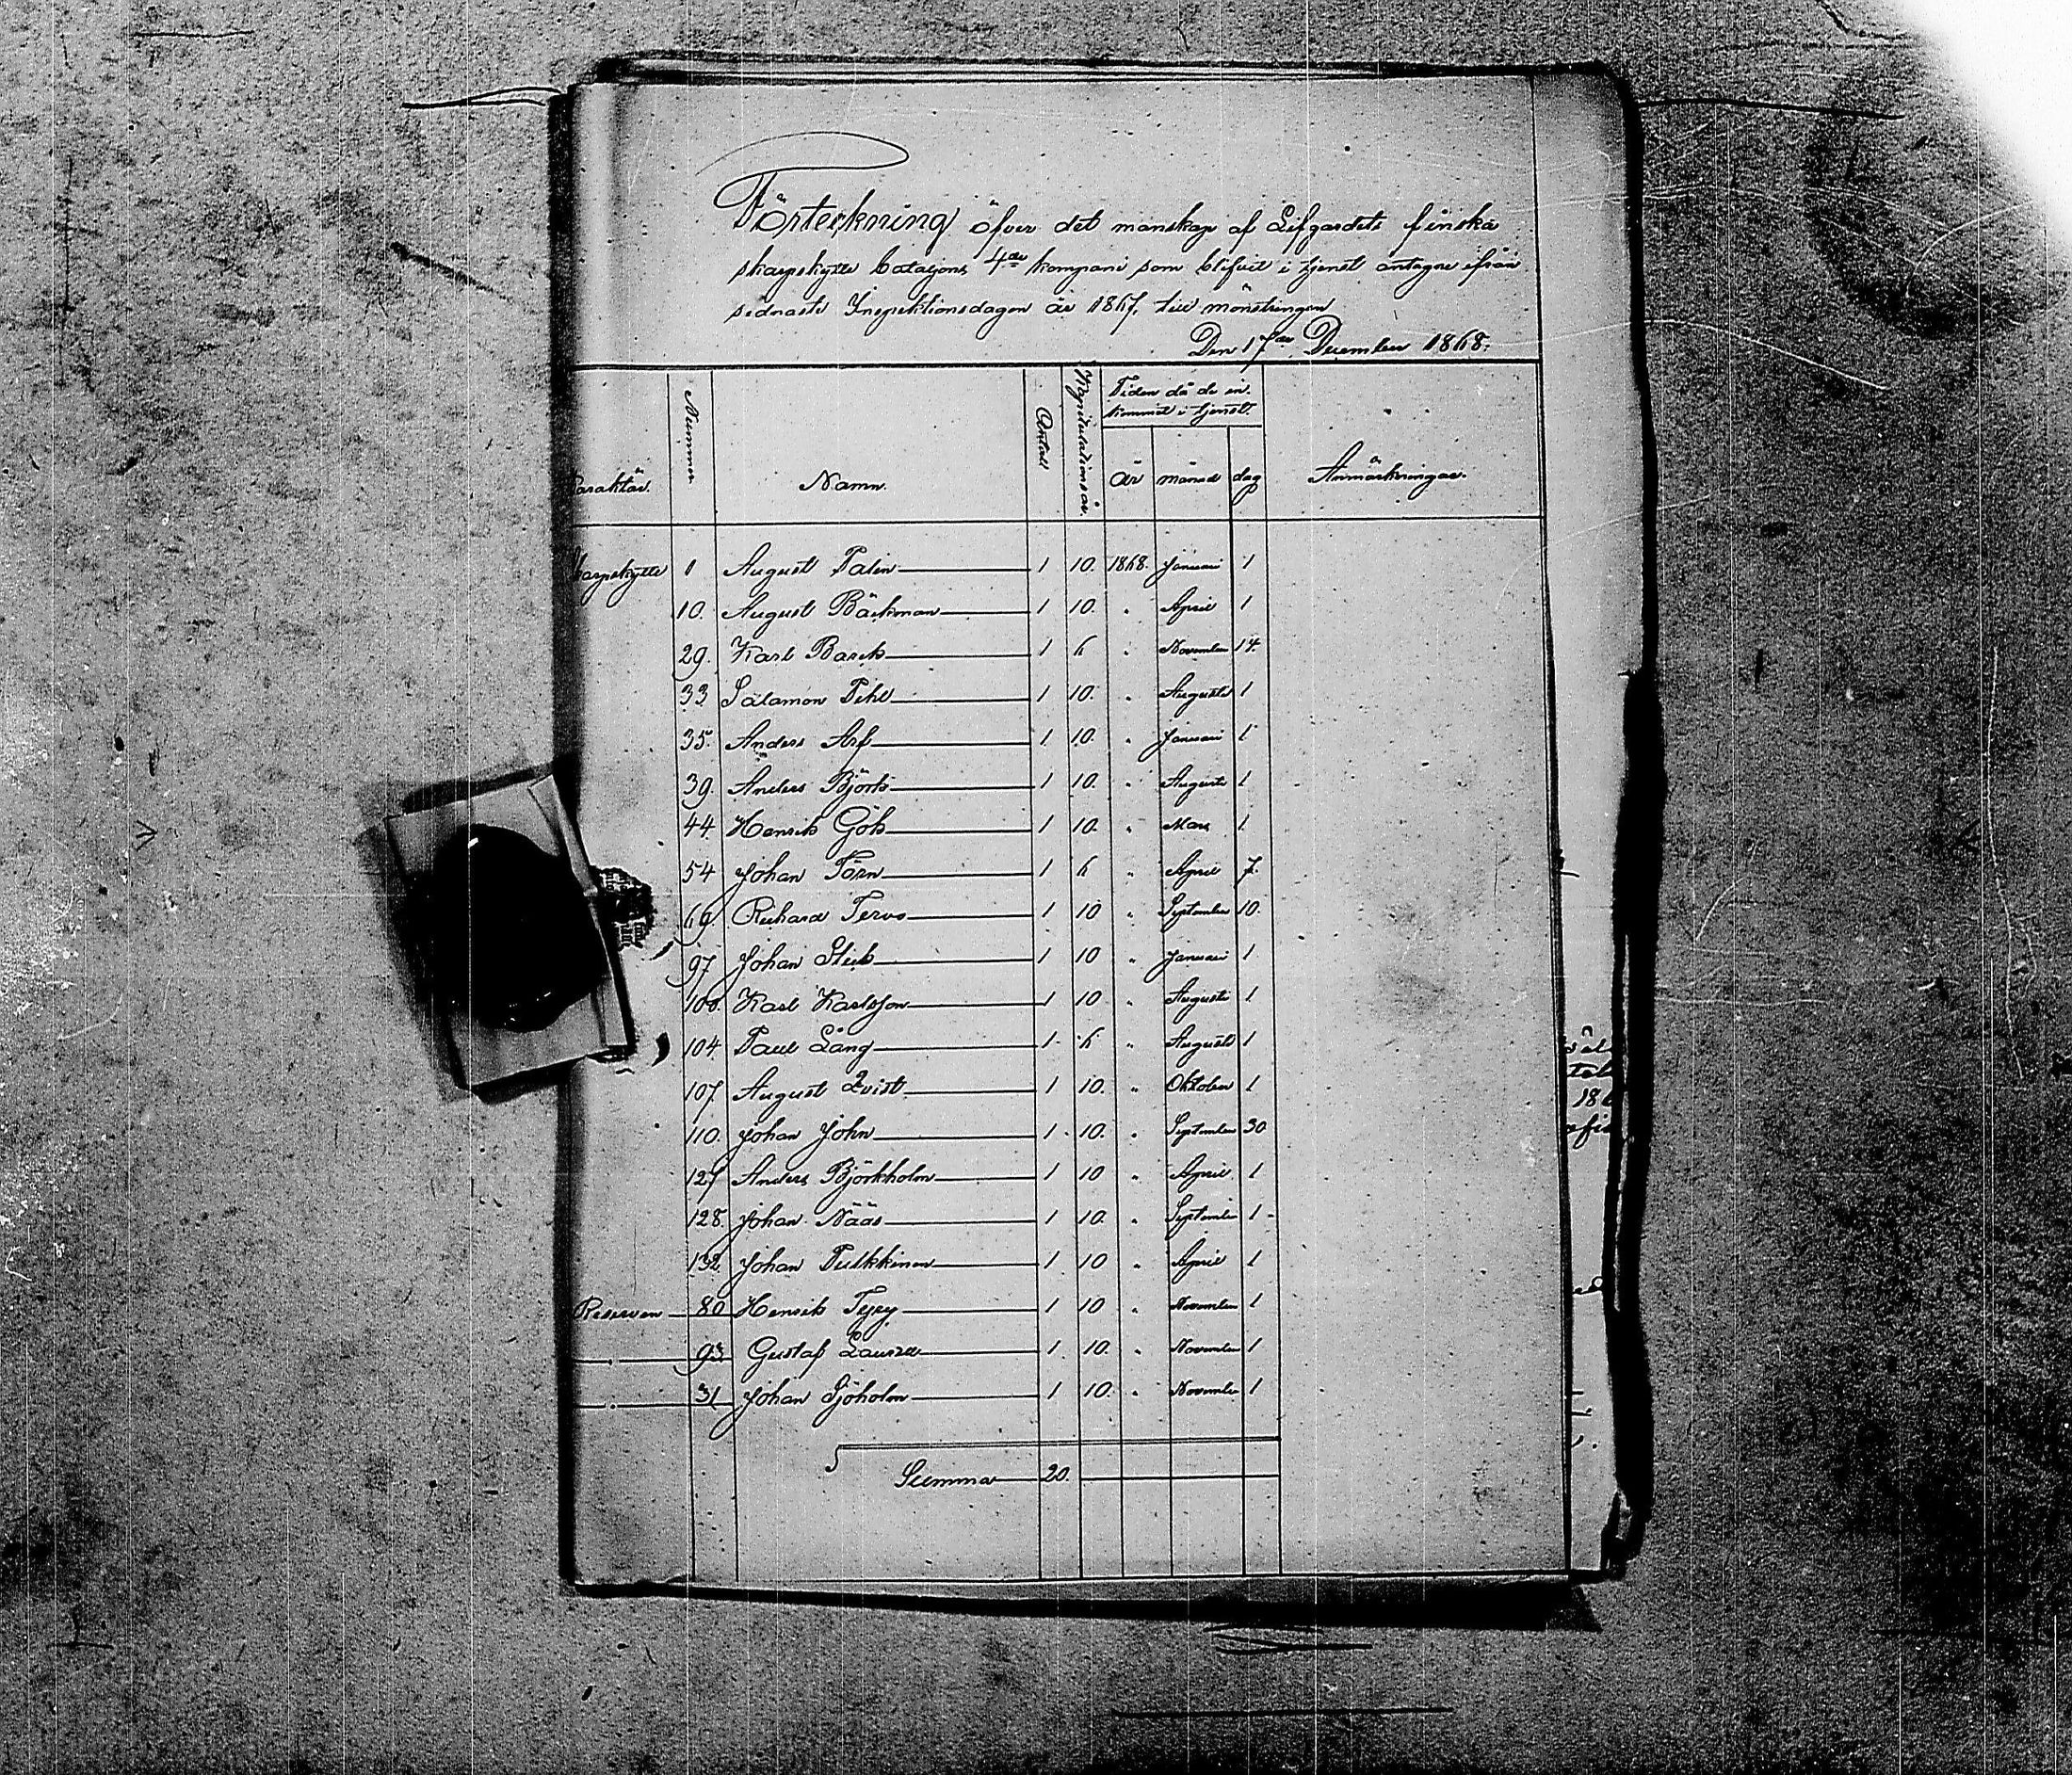 Förteckning öfver det manskap af Lifgardets finska
skarpskytte bataljons 4de kompani som blifvit i tjenst antagne ifrån
sednaste Inspektionsdagen år 1867, till mönstringen
Den 17de December 1868.
Karaktär. Nummer Namn. Antal Kapitulationsår. Tiden då de in- Anmärkningar.
kommit i tjenst.
år månad dag
Skarpskytte 1 August Palin 1 10. 1868. Januari 1
10. August Bäckman 1 10. " April 1
29. Karl Barck 1 6 " November 14.
33 Salamon Pihl 1 10. " Augusti 1
35. Anders Arf 1 10. " Januari 1
39. Anders Björk 1 10. " Augusti 1
44. Henrik Gök 1 10. " Mars 1
54 Johan Törn 1 6 " April 7.
69. Richard Tervo 1 10 " September 10.
97 Johan 1 10 " Januari 1
100. Karl Karlsson 1 10 " Augusti 1
104. Paul Lång 1 6 " Augusti 1
107 August Qvist 1 10. " Oktober 1
110. Johan John 1 10. " September 30
127 Anders Björkholm 1 10 " April 1
128. Johan Nääs 1 10. " September 1
132 Johan Pulkkinen 1 10 " April 1
Reserven 80 Henrik 1 10 " November 1
93 Gustaf 1 10. " November 1
31 Johan Sjöholm 1 10. " November 1
Summa 20.